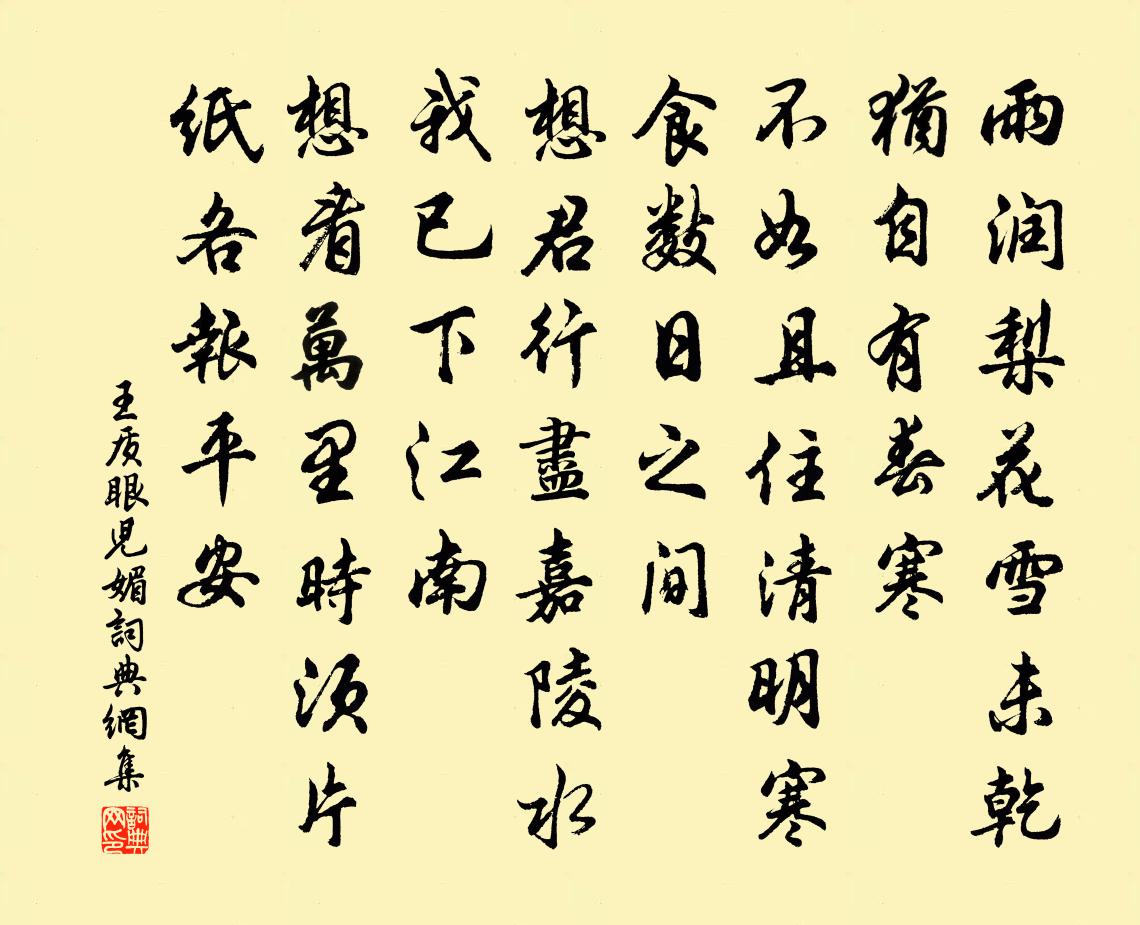 雨润梨花雪未乾
猶自有春寒
不如且住清明寒
食數日之间
想君行盡嘉陵水
我已下江南
想看萬里時须片
纸各報平安
王质眼児媚詞典網集
詞典网印